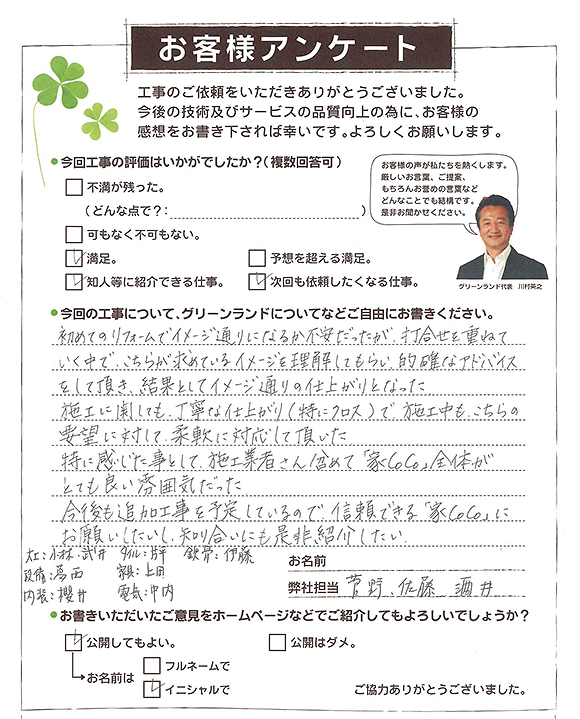 お客様アンケート
工事のご依頼をいただきありがとうございました。
今後の技術及びサービスの品質向上の為に、お客様の
感想をお書き下されば幸いです。よろしくお願いします。
●今回工事の評価はいかがでしたか？（複数回答可）
不満が残った。
（どんな点で？：　　　　　）
可もなく不可もない。
満足。
予想を超える満足。
知人等に紹介できる仕事。
次回も依頼したくなる仕事。
お客様の声が私たちを熱くします。
厳しいお言葉、ご提案、
もちろんお誉めの言葉など
どんなことでも結構です。
是非お聞かせください。
グリーンランド代表　川村英之
●今回の工事について、グリーンランドについてなどご自由にお書きください。
初めてのリフォームでイメージ通りになるか不安だったが、打合せを重ねて
いく中で、こちらが求めているイメージを理解してもらい、的確なアドバイス
をして頂き、結果としてイメージ通りの仕上がりとなった
施工に関しても、丁寧な仕上がり（特にクロス）で、施工中も、こちらの
要望に対して、柔軟に対応して頂いた
特に感じた事として、施工業者さん含めて「家CoCo」全体が
とても良い雰囲気だった
今後も追加工事を予定しているので、信頼できる「家CoCo」に
お願いしたいし、知り合いにも是非紹介したい
大工：小林・武井　タイル：片平　鉄骨：伊藤
設備：葛西　家具：上田
内装：櫻井　電気：中内
お名前
弊社担当 菅野、佐藤　酒井
●お書きいただいたご意見をホームページなどでご紹介してもよろしいでしょうか？
公開してもよい。
公開はダメ。
お名前は
フルネームで
イニシャルで
ご協力ありがとうございました。